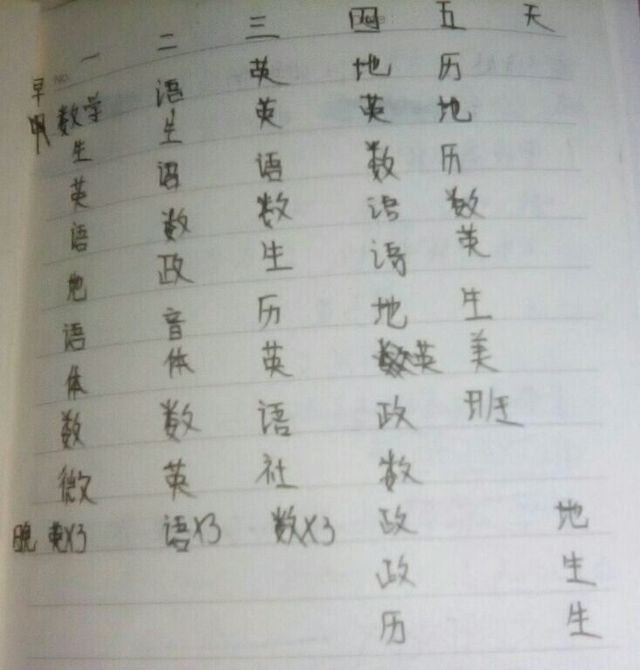 一 二 三 四 五 天
早 数学 语 英 地 历
生 生 英 英 地
英 语 语 数 历
语 数 数 语 数
地 政 生 语 英
语 音 历 地 生
体 体 英 英 美
数 数 语 政 班
微 英 社 数
晚 英X3 语X3 数X3 政 地
政 生
历 生